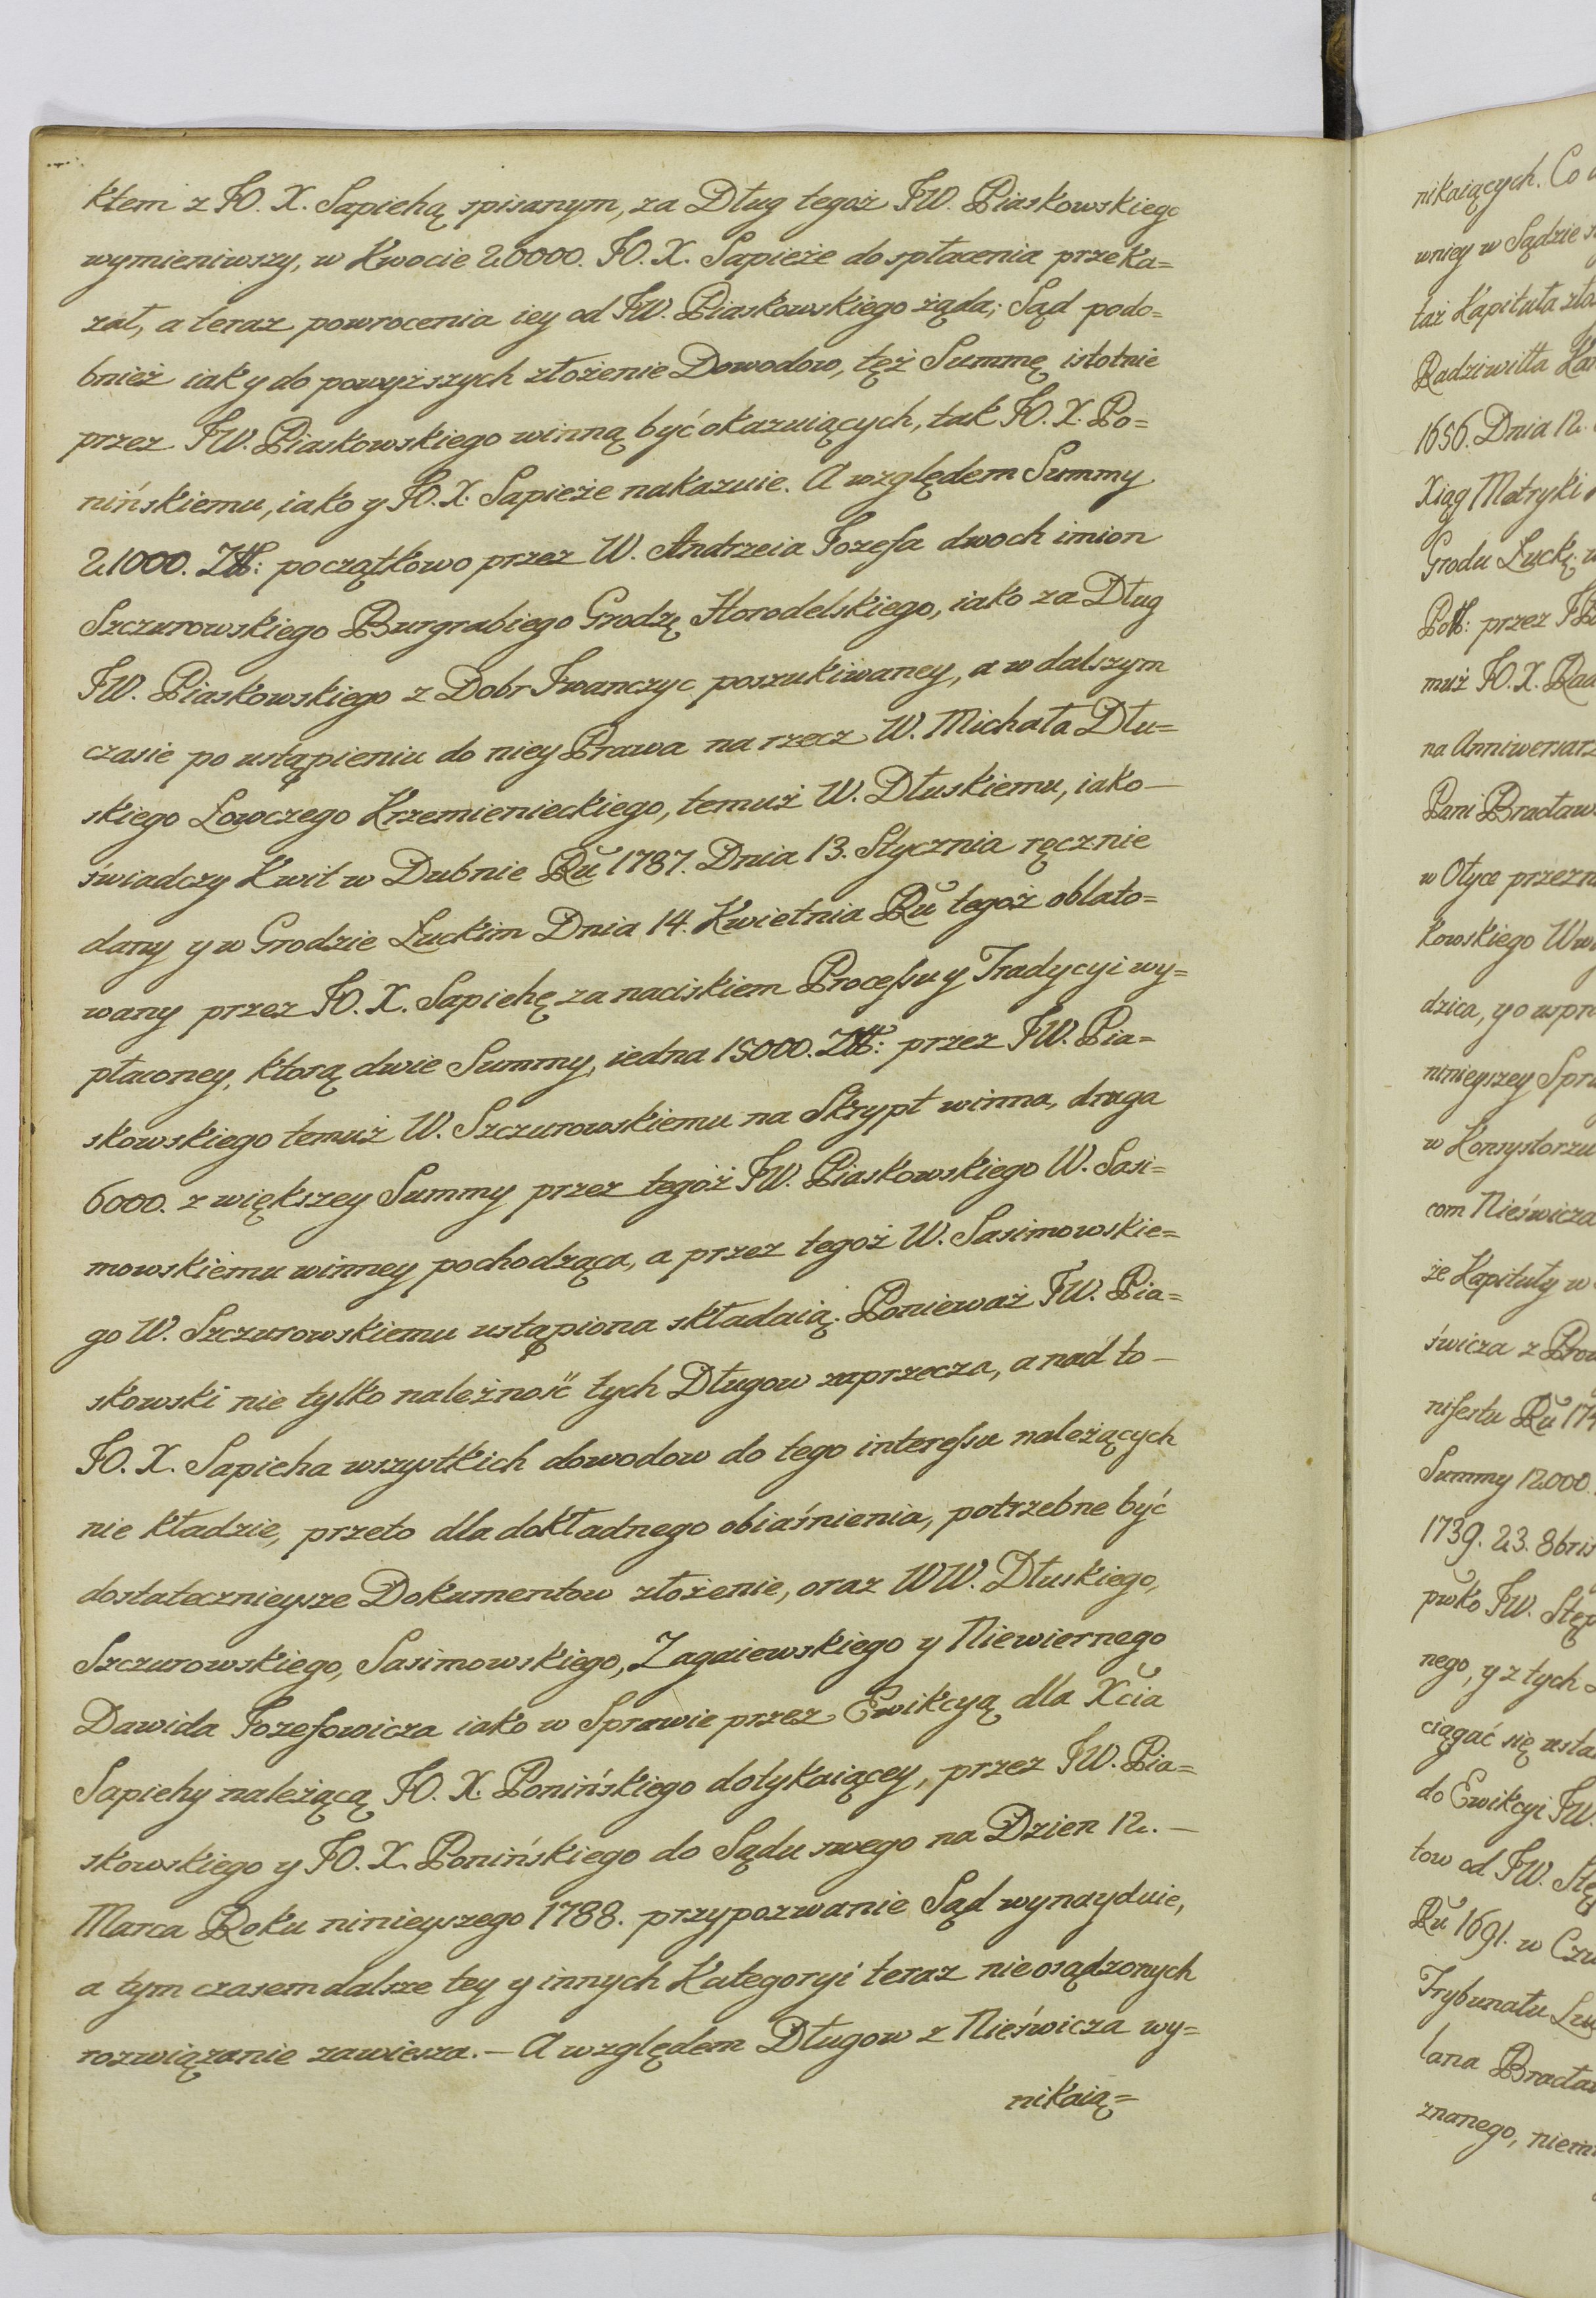 ktem z JO. X. Sapiehą spisanym, za Dług tegoż JW. Piaskowskiego
wymieniwszy, w Kwocie 20000. JO. X. Sapieże do spłacenia przeka=
zał, a teraz powrocenia iey od JW. Piaskowskiego żąda; Sąd podo=
bnież iak y do powyższych złożenie Dowodow, tęż Summę istotnie
przez JW. Piaskowskiego winną być okazuiących, tak JO. X. Po=
nińskiemu, iako y JO. X. Sapieże nakazuie. A względem Summy
21000. Złł: początkowo przez W. Andrzeia Jozefa dwoch imion
Szczurowskiego Burgrabiego Grodzę Horodelskiego, iako za Dług
JW. Piaskowskiego z Dobr Iwanczyc poszukiwaney, a w dalszym
czasie po ustąpieniu do niey Prawa na rzecz W. Michała Dłu=
skiego Łowczego Krzemienieckiego, temuż W. Dłuskiemu, iako —
świadczy Kwit w Dubnie Ru 1787. Dnia 13. Stycznia ręcznie
dany y w Grodzie Łuckim Dnia 14. Kwietnia Ru tegoż oblato=
wany przez JO. X. Sapiehę za naciskiem Processu y Tradycyi wy=
płaconey, ktorą dwie Summy, iedna 15000. Złł: przez JW. Pia=
skowskiego temuż W. Szczurowskiemu na Skrypt winna, druga
6000. z większey Summy przez tegoż JW. Piaskowskiego W. Sasi=
mowskiemu winney pochodząca, a przez tegoż W. Sasimowskie=
go W. Szczurowskiemu ustąpiona składaią. Ponieważ JW. Pia=
skowski nie tylko należność tych Długow zaprzecza, a nad to —
JO. X. Sapieha wszystkich dowodow do tego interessu należących
nie kładzie, przeto dla dokładnego obiaśnienia, potrzebne być
dostatecznieysze Dokumentow złożenie, oraz WW. Dłuskiego,
Szczurowskiego, Sasimowskiego, Zagaiewskiego y Niewiernego
Dawida Jozefowicza iako w Sprawie przez Ewikcyą dla Xcia
Sapiehy należącą JO. X. Ponińskiego dotykaiącey, przez JW. Pia=
skowskiego y JO. X. Ponińskiego do Sądu swego na Dzien 12. —
Marca Roku ninieyszego 1788. przypozwanie Sąd wynayduie,
a tym czasem dalsze tey y innych Kategoryi teraz nie osądzonych
rozwiązanie zawiesza. — A względem Długow z Nieświcza wy=
nikaią=
nikaiących. Co
wniey w Sądzie
taż Kapituła
Radziwiłła
1656. Dnia 12.
Xiąg Metryki
Grodu Łuckę
Polł: przez
muż JO. X.
na Anniwersarz
Pani
w Ołyce
kowskiego
dzica, y o
ninieyszey
w Konsystorzu
com Nieświcza
że Kapituły w
świcza z
nifestu Ru
Summy 12000.
1739. 23. 8bris
pwko JW.
nego, y z tych
ciągać się
do Ewikcyi JW.
tow od JW.
Ru 1691. w
Trybunału
lana
znanego,